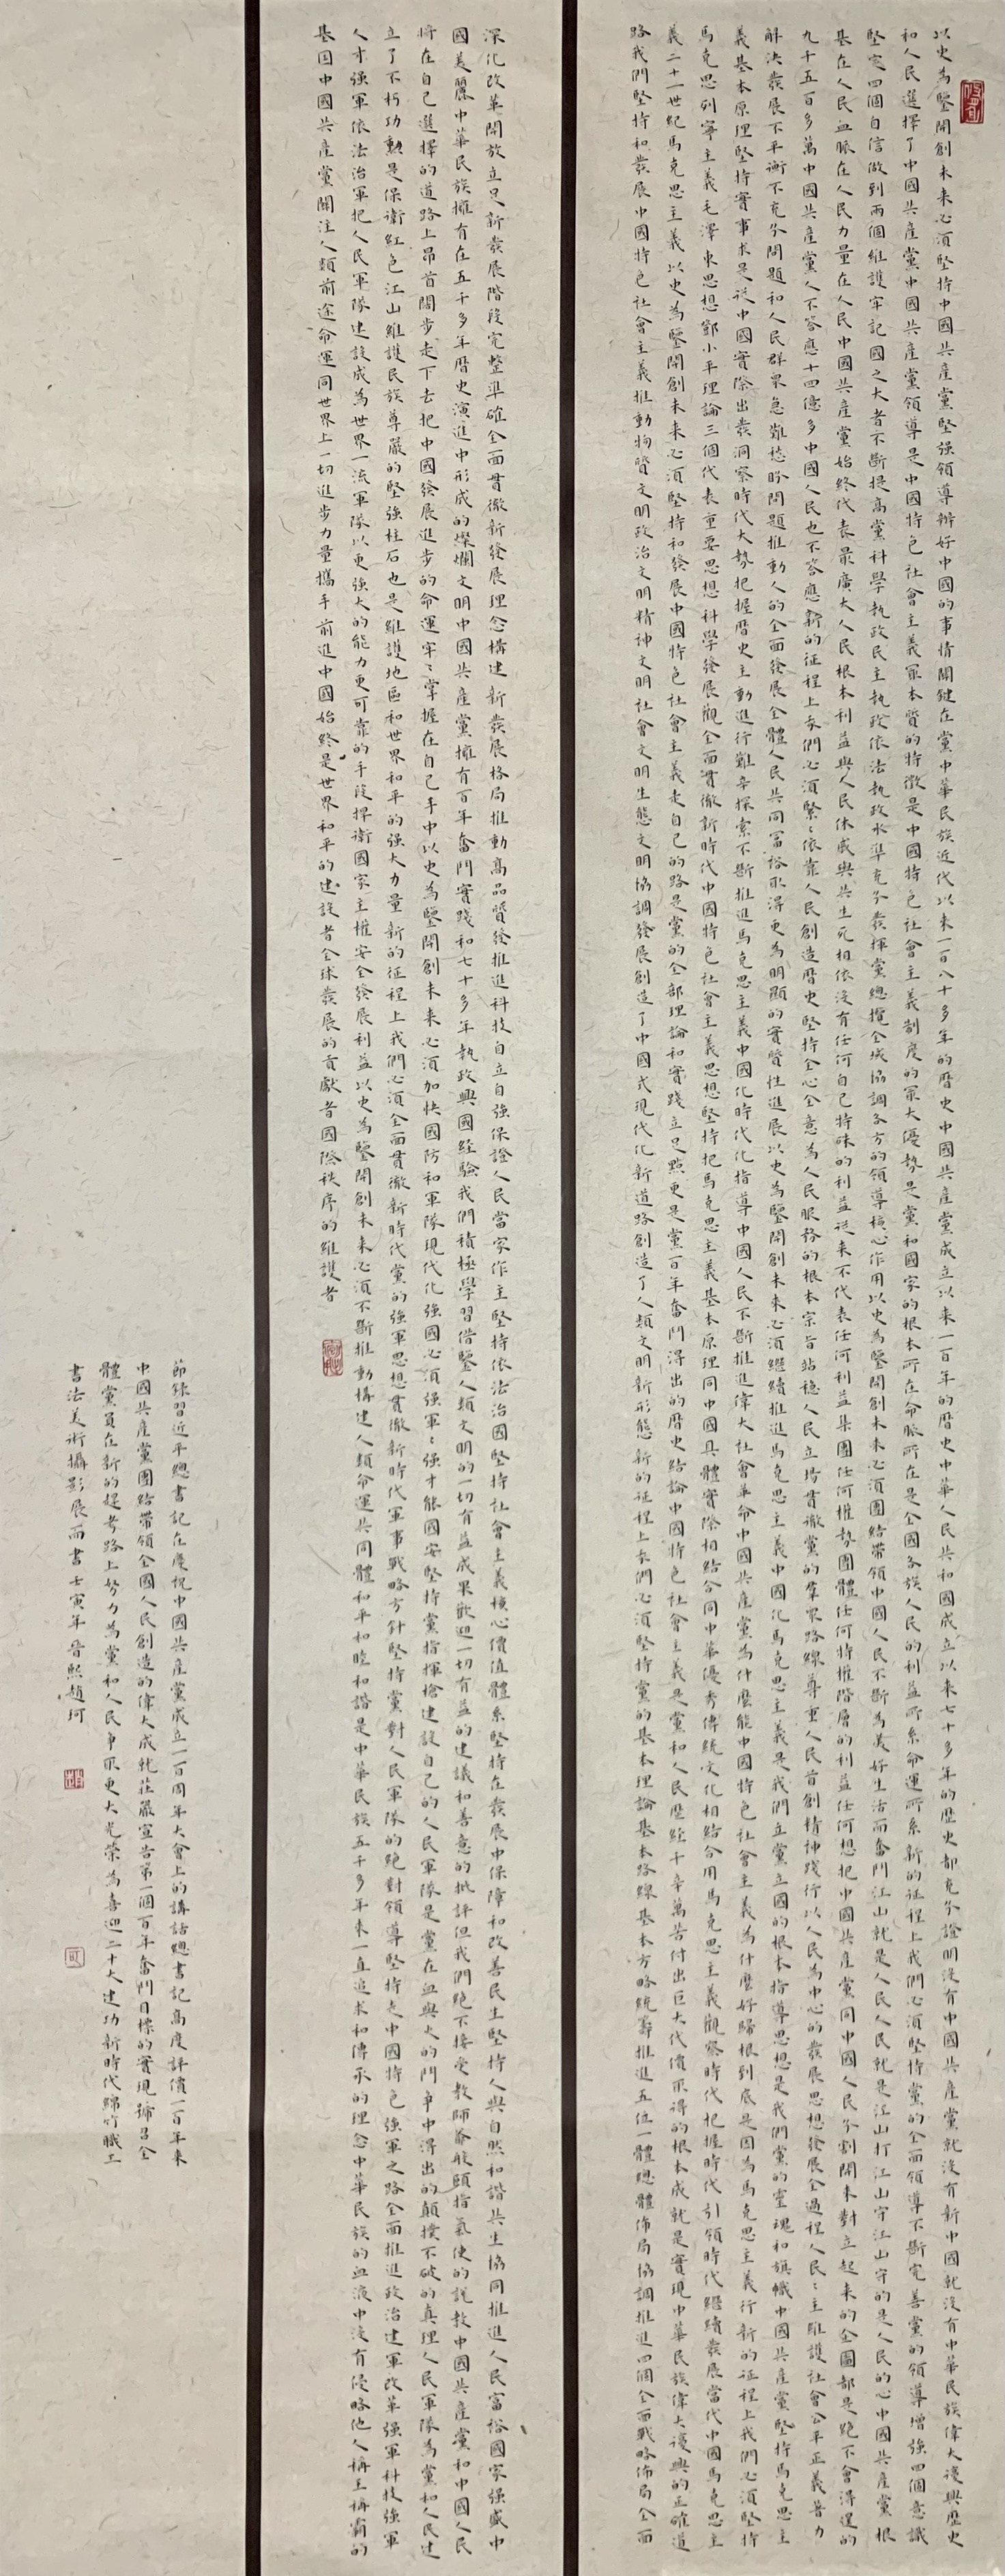 以史為鑒開創未來必須堅持中國共產黨堅強領導辦好中國的事情關鍵在黨中華民族近代以來一百八十多年的曆史中國共產黨成立以來一百年的曆史中華人民共和國成立以來七十多年的歷史都充分證明沒有中國共產黨就沒有新中國就沒有中華民族偉大復興歷史
和人民選擇了中國共產黨中國共產黨領導是中國特色社會主義最本質的特徵是中國特色社會主義制度的最大優勢是黨和國家的根本所在命脈所在是全國各族人民的利益所系命運所系新的征程上我們必須堅持黨的全面領導不斷完善黨的領導增強四個意識
堅定四個自信做到兩個維護牢記國之大者不斷提高黨科學執政民主執政依法執政水準充分發揮黨總攬全域協調各方的領導核心作用以史為鑒開創未來必須團結帶領中國人民不斷為美好生活而奮鬥江山就是人民人民就是江山打江山守江山守的是人民的心中國共產黨根
基在人民血脈在人民力量在人民中國共產黨始終代表最廣大人民根本利益與人民休戚與共生死相依沒有任何自己特殊的利益從來不代表任何利益集團任何權勢團體任何特權階層的利益任何想把中國共產黨同中國人民分割開來對立起來的企圖都是絕不會得逞的
九千五百多萬中國共產黨人不答應十四億多中國人民也不答應新的征程上我們必須緊緊依靠人民創造曆史堅持全心全意為人民服務的根本宗旨站穩人民立場貫徹黨的群眾路線尊重人民首創精神踐行以人民為中心的發展思想發展全過程人民民主維護社會公平正義著力
解決發展不平衡不充分問題和人民群眾急難愁盼問題推動人的全面發展全體人民共同富裕取得更為明顯的實質性進展以史為鑒開創未來必須繼續推進馬克思主義中國化馬克思主義是我們立黨立國的根本指導思想是我們黨的靈魂和旗幟中國共產黨堅持馬克思主
義基本原理堅持實事求是從中國實際出發洞察時代大勢把握曆史主動進行艱辛探索不斷推進馬克思主義中國化時代化指導中國人民不斷推進偉大社會革命中國共產黨為什麼能中國特色社會主義為什麼好歸根到底是因為馬克思主義行新的征程上我們必須堅持
馬克思列寧主義毛澤東思想鄧小平理論三個代表重要思想科學發展觀全面貫徹新時代中國特色社會主義思想堅持把馬克思主義基本原理同中國具體實際相結合同中華優秀傳統文化相結合用馬克思主義觀察時代把握時代引領時代繼續發展當代中國馬克思主
義二十一世紀馬克思主義以史為鑒開創未來必須堅持和發展中國特色社會主義走自己的路是黨的全部理論和實踐立足點更是黨百年奮鬥得出的曆史結論中國特色社會主義是黨和人民歷經千辛萬苦付出巨大代價取得的根本成就是實現中華民族偉大復興的正確道
路我們堅持和發展中國特色社會主義推動物質文明政治文明精神文明社會文明生態文明協調發展創造了中國式現代化新道路創造了人類文明新形態新的征程上我們必須堅持黨的基本理論基本路線基本方略統籌推進五位一體總體佈局協調推進四個全面戰略佈局全面
深化改革開放立足新發展階段完整準確全面貫徹新發展理念構建新發展格局推動高品質發推進科技自立自強保證人民當家作主堅持依法治國堅持社會主義核心價值體系堅持在發展中保障和改善民生堅持人與自然和諧共生協同推進人民富裕國家強盛中
國美麗中華民族擁有在五千多年曆史演進中形成的燦爛文明中國共產黨擁有百年奮鬥實踐和七十多年執政興國經驗我們積極學習借鑒人類文明的一切有益成果歡迎一切有益的建議和善意的批評但我們絕不接受教師爺般頤指氣使的說教中國共產黨和中國人民
將在自己選擇的道路上昂首闊步走下去把中國發展進步的命運牢牢掌握在自己手中以史為鑒開創未來必須加快國防和軍隊現代化強國必須強軍軍強才能國安堅持黨指揮槍建設自己的人民軍隊是黨在血與火的鬥爭中得出的顛撲不破的真理人民軍隊為黨和人民建
立了不朽功勳是保衛紅色江山維護民族尊嚴的堅強柱石也是維護地區和世界和平的強大力量新的征程上我們必須全面貫徹新時代黨的強軍思想貫徹新時代軍事戰略方針堅持黨對人民軍隊的絕對領導堅持走中國特色強軍之路全面推進政治建軍改革強軍科技強軍
人才強軍依法治軍把人民軍隊建設成為世界一流軍隊以更強大的能力更可靠的手段捍衛國家主權安全發展利益以史為鑒開創未來必須不斷推動構建人類命運共同體和平和睦和諧是中華民族五千多年來一直追求和傳承的理念中華民族的血液中沒有侵略他人稱王稱霸的
基因中國共產黨關注人類前途命運同世界上一切進步力量攜手前進中國始終是世界和平的建設者全球發展的貢獻者國際秩序的維護者
節錄習近平總書記在慶祝中國共產黨成立一百周年大會上的講話總書記高度評價一百年來
中國共產黨團結帶領全國人民創造的偉大成就莊嚴宣告第一個百年奮鬥目標的實現號召全
體黨員在新的趕考路上努力為黨和人民爭取更大光榮為喜迎二十大建功新時代綿竹職工
書法美術攝影展而書壬寅年晉熙趙珂